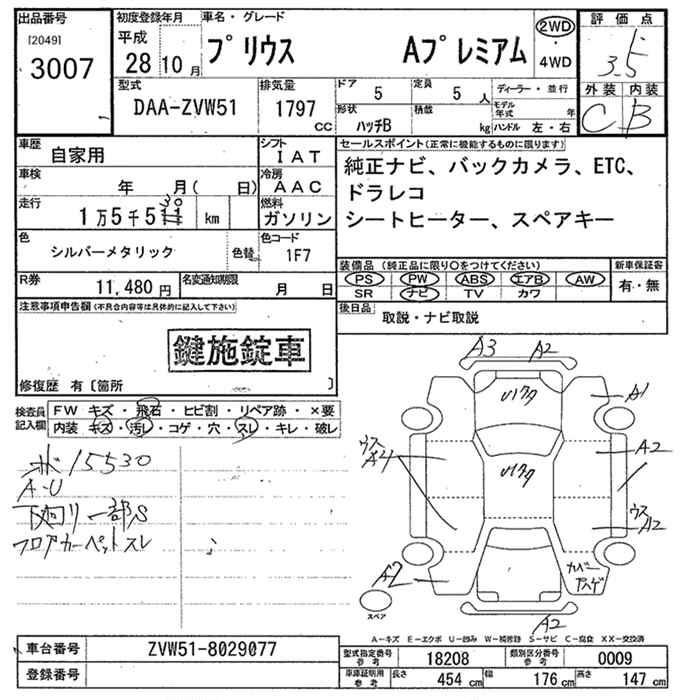 出品番号
[2049]
3007
初度登録年月
平成
28 10月
車名・グレード
プリウス Aプレミアム
2WD
・
4WD
評価点
3.5
外装 内装
C B
型式
DAA-ZVW51
排気量
1797
cc
ドア
5
定員
5人
形状
ハッチB
積載
kg
ディーラー・並行
モデル年式 年
ハンドル 左・右
車歴
自家用
シフト
IAT
車検
年 月( 日)
冷房
AAC
走行
1万5千5
km
燃料
ガソリン
色
シルバーメタリック
色替
色コード
1F7
R券
11,480円
名変通知期限
月 日
セールスポイント(正常に機能するものに限ります)
純正ナビ、バックカメラ、ETC、
ドラレコ
シートヒーター、スペアキー
装備品(純正品に限り○をつけてください)
PS PW ABS エアB AW
SR ナビ TV カワ
新車保証書
有・無
後日品
取説・ナビ取説
注意事項申告欄(不具合内容等は具体的に記入して下さい)
鍵施錠車
修復歴 有〔箇所 〕
検査員
記入欄
FW キズ・飛石・ヒビ割・リペア跡・×要
内装・キズ・汚レ・コゲ・穴・スレ・キレ・破レ
15530
A-U
下廻リ一部S
フロアカーペットスレ
A3 A2
A1
ウス
A4
A2
ウス
A2
A2
カバー
A2
スペア
A-キズ E-エクボ U-凹み W-補修跡 S-サビ C-腐食 XX-交換済
車台番号
ZVW51-8029077
登録番号
型式指定番号
参考
18208
類別区分番号
参考
0009
車庫証明用
参考
長さ 454 cm 幅 176 cm 高さ 147 cm